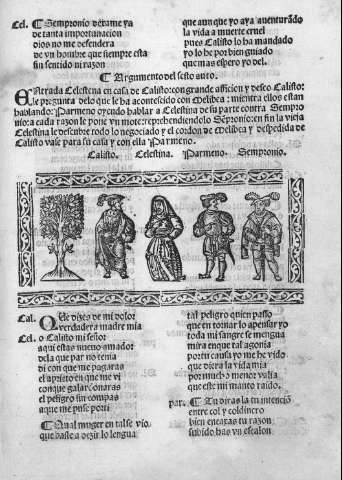 Cel. ¶ Sempronio dexame ya
de tanta importunacion
dios no me defendera
de vn hombre que siempre esta
sin sentido ni razon
que aun que yo aya auenturado
la vida a muerte cruel
pues Calisto lo ha mandado
yo lo he por bien guiado
que mas espero yo del.
¶ Argumento del sesto auto.
ENtrada Celestina en casa de Calisto: con grande aficion y deseo Calisto:
le pregunta delo que le ha acontescido con Melibea: mientra ellos estan
hablando: Parmeno oyendo hablar a Celestina de su parte contra Sempro
nio: a cada razon le pone vn mote: reprehendiendolo Sẽpronio: en fin la vieja
Celestina le descubre todo lo negociado y el cordon de Melibea y despedida de
Calisto vase para su casa y con ella Parmeno.
Calisto. Celestina. Parmeno. Sempronio.
Cal. QUe dizes de mi dolor
verdadera madre mia
Cel. o Calisto mi señor
aqui estas nueuo amador
dela que par no tenia
di con que me pagaras
el aprieto en que me vi
con que galardonaras
el peligro sin compas
a que me puse por ti
¶ Qual muger en tal se vio
que baste a dezir lo lengua
tal peligro quien passo
que en tornar lo apensar yo
toda mi sangre se mengua
mira en que tal agonia
por tu causa yo me he vido
que diera la vida mia
por mucho menor valia
que este mi manto raido.
par. ¶ Tu diras la tu intenciõ
entre col y col dinero
bien encaxas tu razon
subido has vn escalon